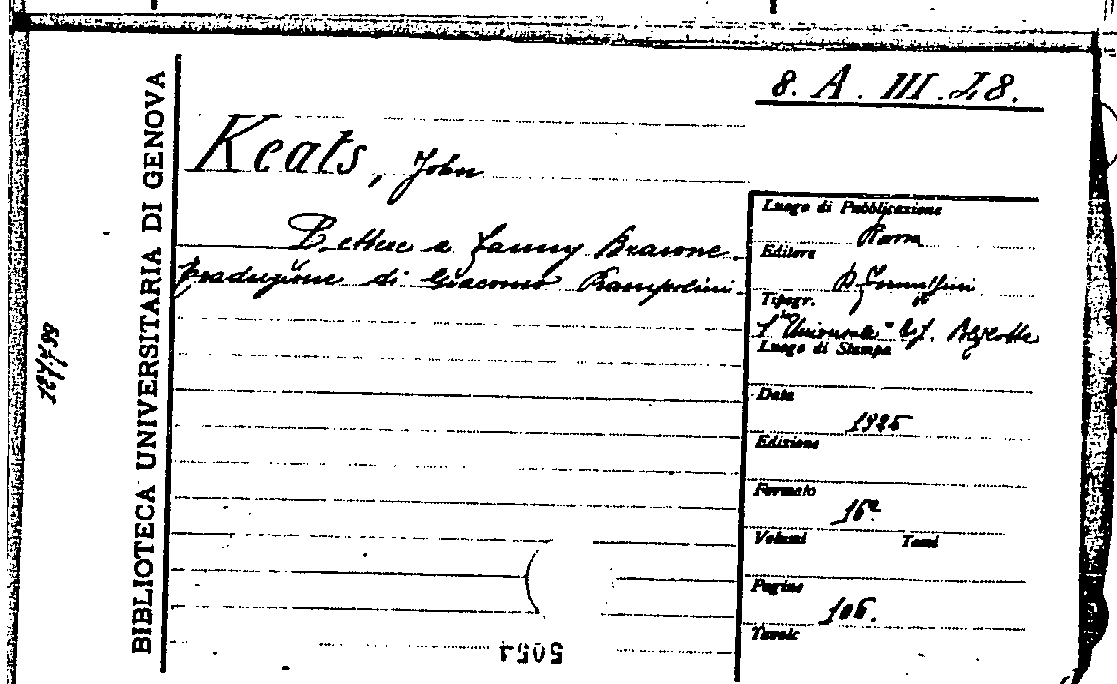 8. A. III. 28.
BIBLIOTECA UNIVERSITARIA DI GENOVA
Keats, John
Lettere a Fanny Brawne.
Traduzione di Giacomo Prampolini
Luogo di Pubblicazione
Roma
Editore
Tipogr.
Luogo di Stampa
Data
1925
Edizione
Formato
16°
Volumi Tomi
Pagine
106.
Tavole
127799
5054